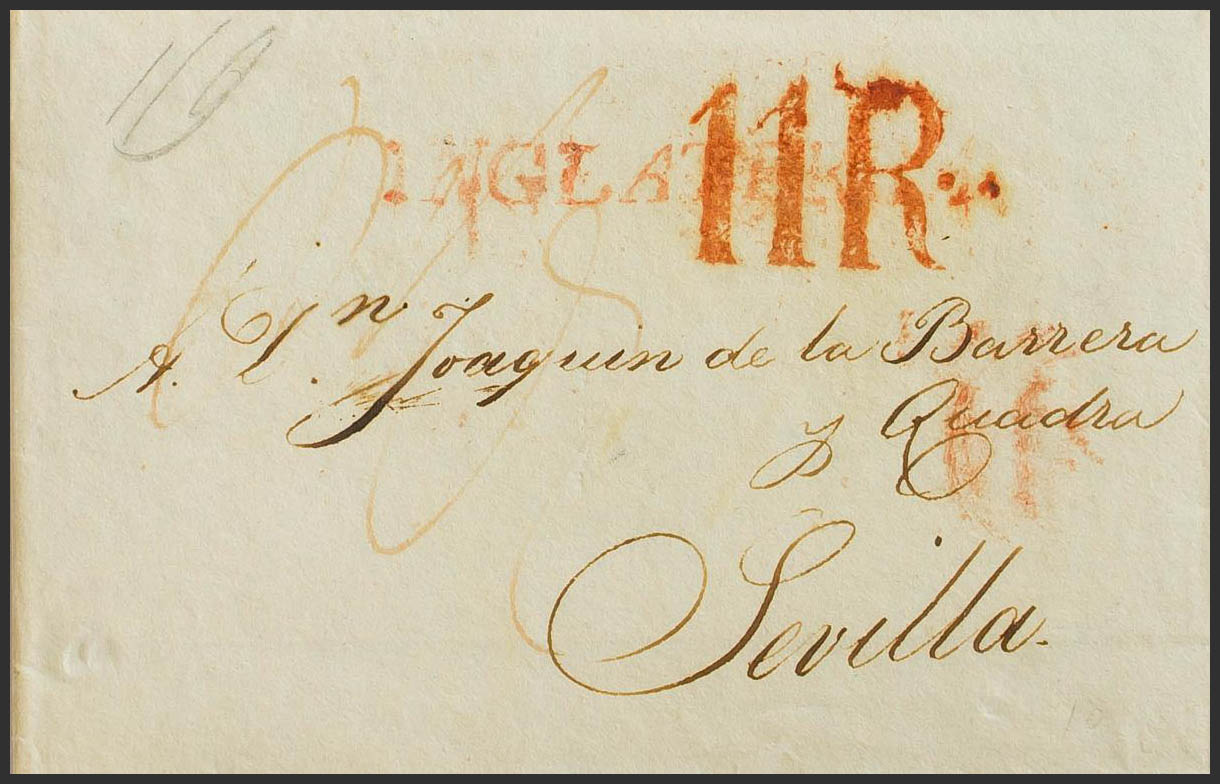 INGLATERRA
11R.
A. Dn. Joaquin de la Barrera
y Quadra
Sevilla.